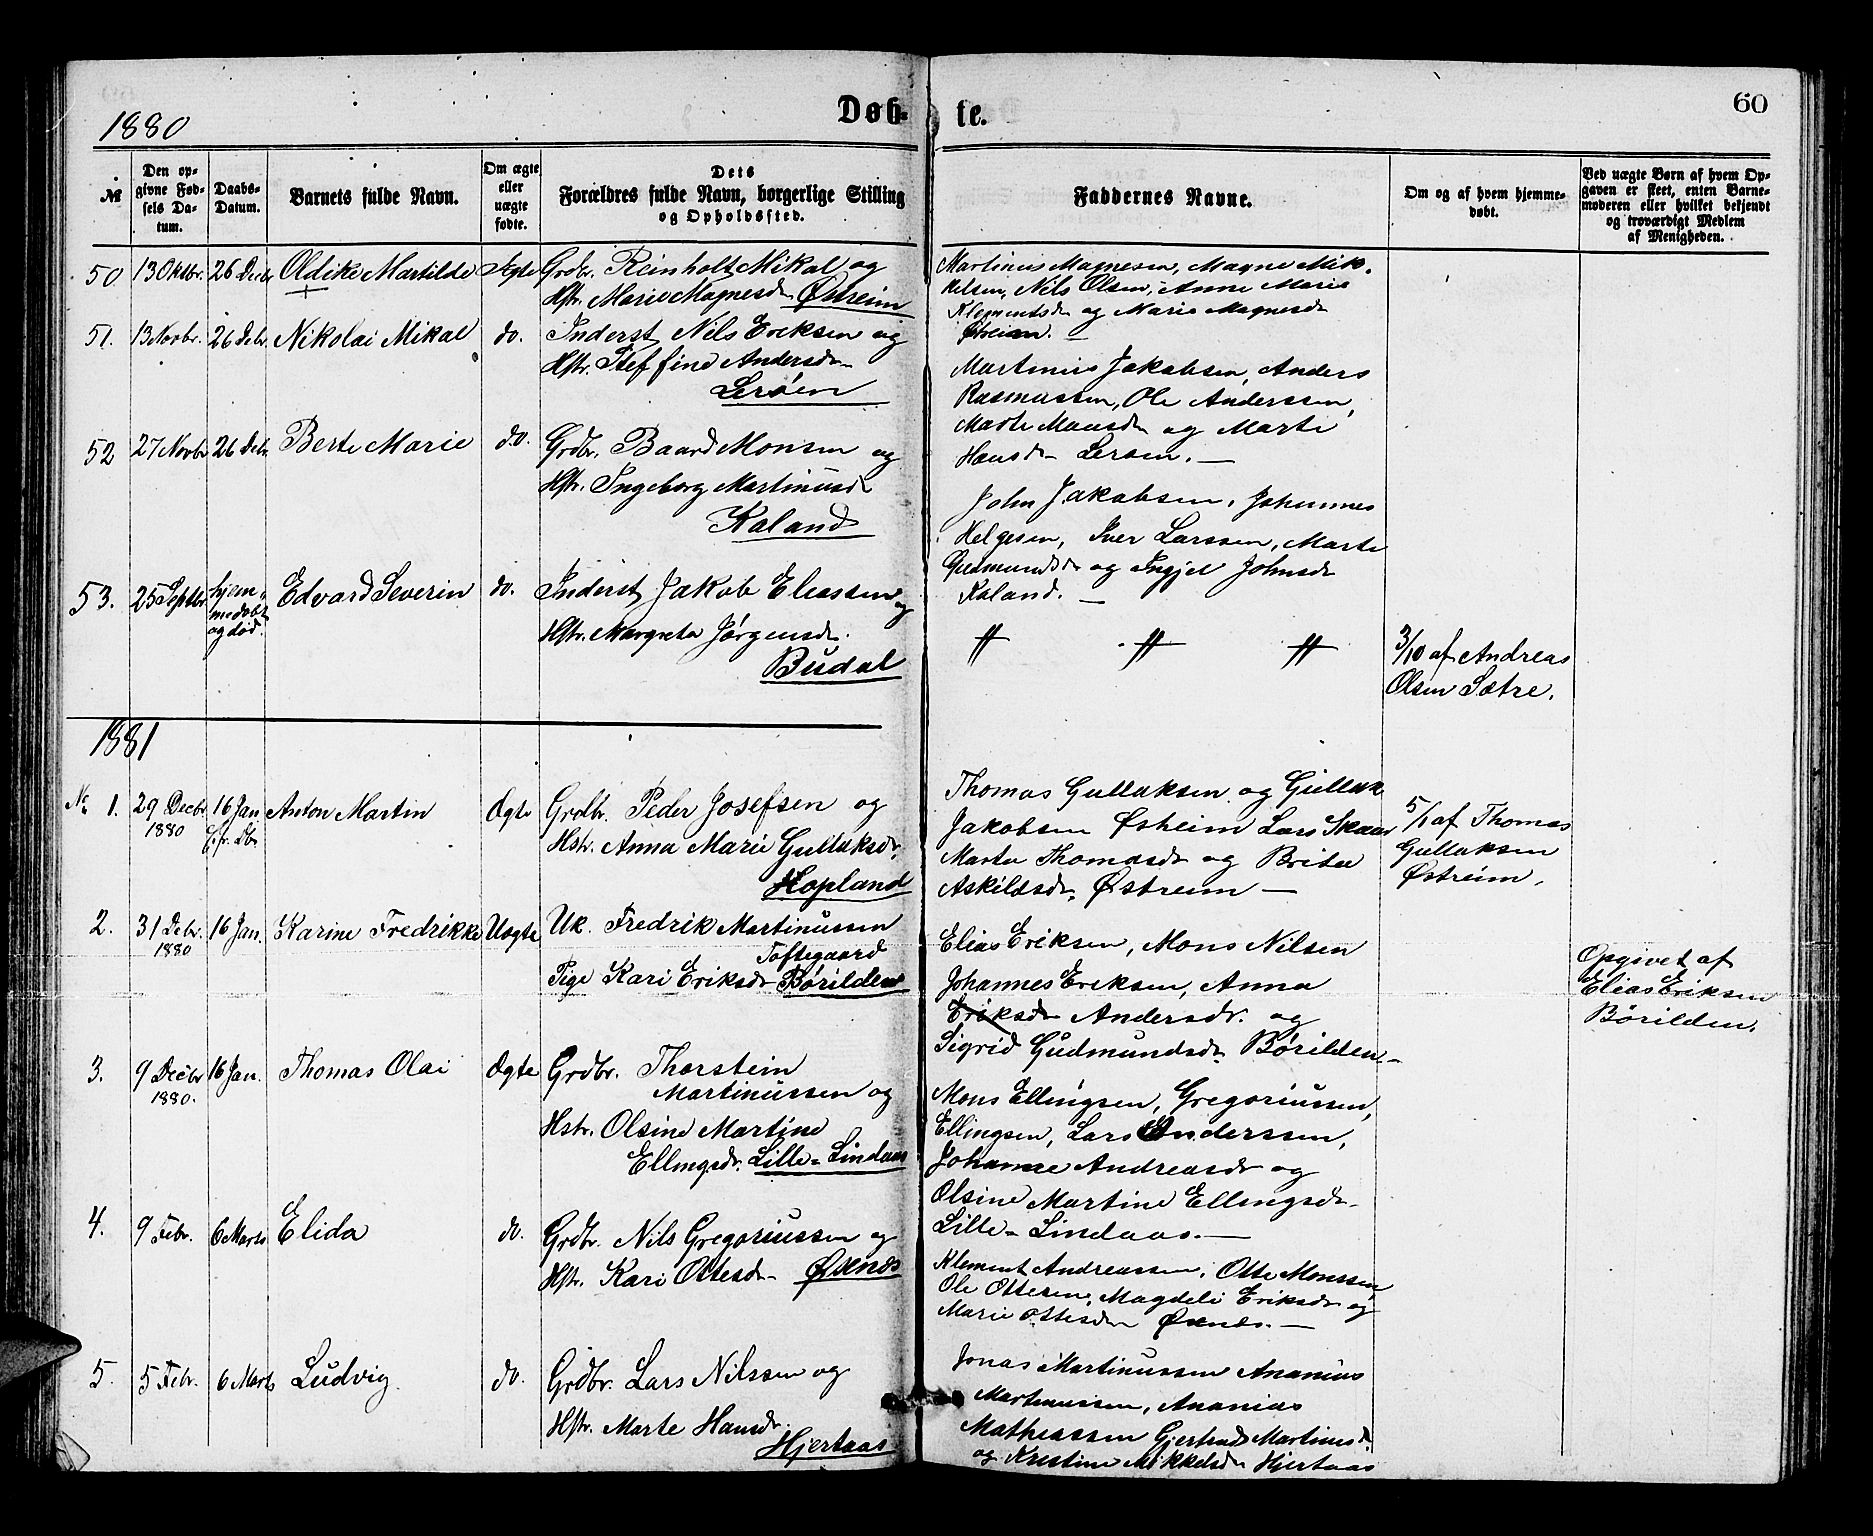 1880
Døb-
te.
60
№
Den op-
givne Fød-
sels Da-
tum.
Daabs-
Datum.
Barnets fulde Navn.
Om ægte
eller
uægte
fødte.
Dets
Forældres fulde Navn, borgerlige Stilling
og Opholdssted.
Faddernes Navne.
Om og af hvem hjemme-
døbt.
Ved uægte Børn af hvem Op-
gaven er skeet, enten Barne-
moderen eller hvilket bekjendt
og troværdigt Medlem
af Menigheden.
50 13 Oktbr. 26 Decbr Oldike Martilde Ægte Grdbr. Reinholt Mikal og
Hstr. Marie Magnesdr. Østreim
Martinus Magnesen, Magne Mik-
kelsen, Nils Olsen, Anne Marie
Klementsdr og Marie Magnesdr
Østreim.
51. 13 Novbr. 26 Debr. Nikolai Mikal do. Inderst Nils Eriksen og
Hstr. Steffine Andersdr.
Lerøen
Martinus Jakobsen, Anders
Rasmussen, Ole Anderssen,
Marte Monsdr og Marte
Hansdr Lerøen. —
52 27 Novbr 26 Debr. Berte Marie do. Grdbr. Baard Monsen og
Hstr. Ingeborg Martinusdr
Kaland
John Jakobsen, Johannes
Helgesen, Iver Larssen, Marte
Gudmundsdr og Ingjel Johnsdr
Kaland. —
53. 25 Septbr hjem-
medøbt
og død. Edvard Severin do. Inderst Jakob Eliassen og
Hstr. Margreta Jørgensdr.
Budal
〃 〃 〃
3/10 af Andreas
Olsen Sætre.
1881
No 1. 29 Decbr
1880 16 Jan.
f. fr. Db. Anton Martin Ægte Grdbr. Peder Josefsen og
Hstr. Anna Marie Gullaksdr.
Hopland
Thomas Gullaksen og Gullak
Jakobsen Østreim Lars Skaar
Marta Thomasdr og Brita
Askildsdr. Østreim —
5/1 af Thomas
Gullaksen
Østreim.
2. 31 Debr.
1880 16 Jan. Karine Fredrikke Uægte Uk. Fredrik Martinussen
Toftegaard
Pige Kari Eriksdr Børilden
Elias Eriksen, Mons Nilsen
Johannes Eriksen, Anna
Eriksdr Andersdr. og
Sigrid Gudmundsdr Børilden. —
Opgivet af
Elias Eriksen
Børilden.
3. 9 Decbr
1880. 16 Jan. Thomas Olai Ægte Grdbr. Thorstein
Martinussen og
Hstr. Olsine Martine
Ellingsdr. Lille-Lindaas
Mons Ellingsen, Gregoriussen,
Ellingsen, Lars Anderssen,
Johanne Andreasdr og
Olsine Martine Ellingsdr
Lille-Lindaas. —
4. 9 Febr. 6 Marts Elida do. Grdbr. Nils Gregoriussen og
Hstr. Kari Ottesdr Øxnes
Klement Andreassen, Otte Monssen
Ole Ottesen, Magdeli Eriksdr og
Marie Ottesdr Øxnes. —
5. 5 Febr. 6 Marts Ludvig do. Grdbr. Lars Nilssen og
Hstr. Marte Hansdr.
Hjertaas
Jonas Martinussen Ananias
Martinussen, Ananias
Mathiassen Gjertrud Martinusdr
og Kristine Mikkelsdr Hjertaas